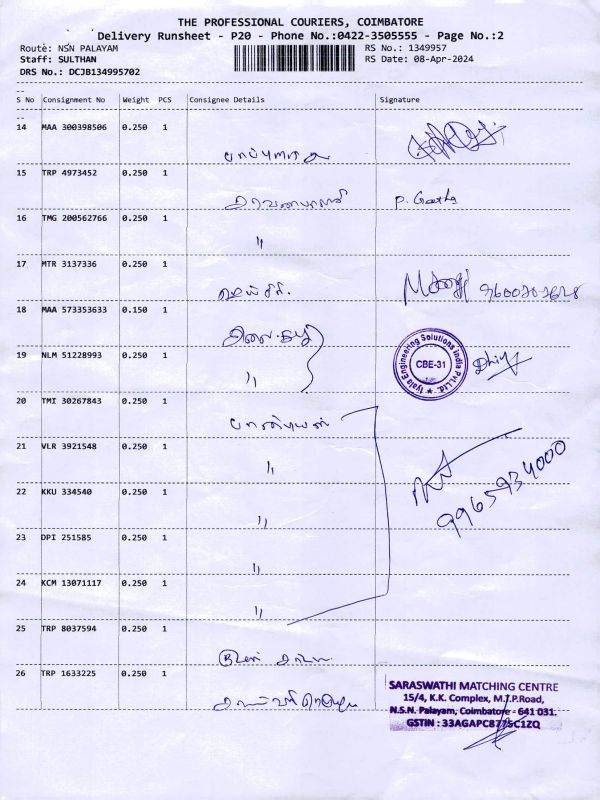 THE PROFESSIONAL COURIERS, COIMBATORE
Delivery Runsheet - P20 - Phone No.:0422-3505555 - Page No.:2
Route: NSN PALAYAM RS No.: 1349957
Staff: SULTHAN RS Date: 08-Apr-2024
DRS No.: DCJB134995702
S No Consignment No Weight PCS Consignee Details Signature
14 MAA 300398506 0.250 1
15 TRP 4973452 0.250 1
P. Geetha
16 TMG 200562766 0.250 1
"
17 MTR 3137336 0.250 1
18 MAA 573353633 0.150 1
19 NLM 51228993 0.250 1
"
Iyala Engineering Solutions India Pvt.Ltd. ★
CBE-31
20 TMI 30267843 0.250 1
பாண்டியன்
21 VLR 3921548 0.250 1
"
9965934000
22 KKU 334540 0.250 1
"
23 DPI 251585 0.250 1
"
24 KCM 13071117 0.250 1
"
25 TRP 8037594 0.250 1
26 TRP 1633225 0.250 1
SARASWATHI MATCHING CENTRE
15/4, K.K. Complex, M.T.P.Road,
N.S.N. Palayam, Coimbatore - 641 031.
GSTIN : 33AGAPC8775C1ZQ